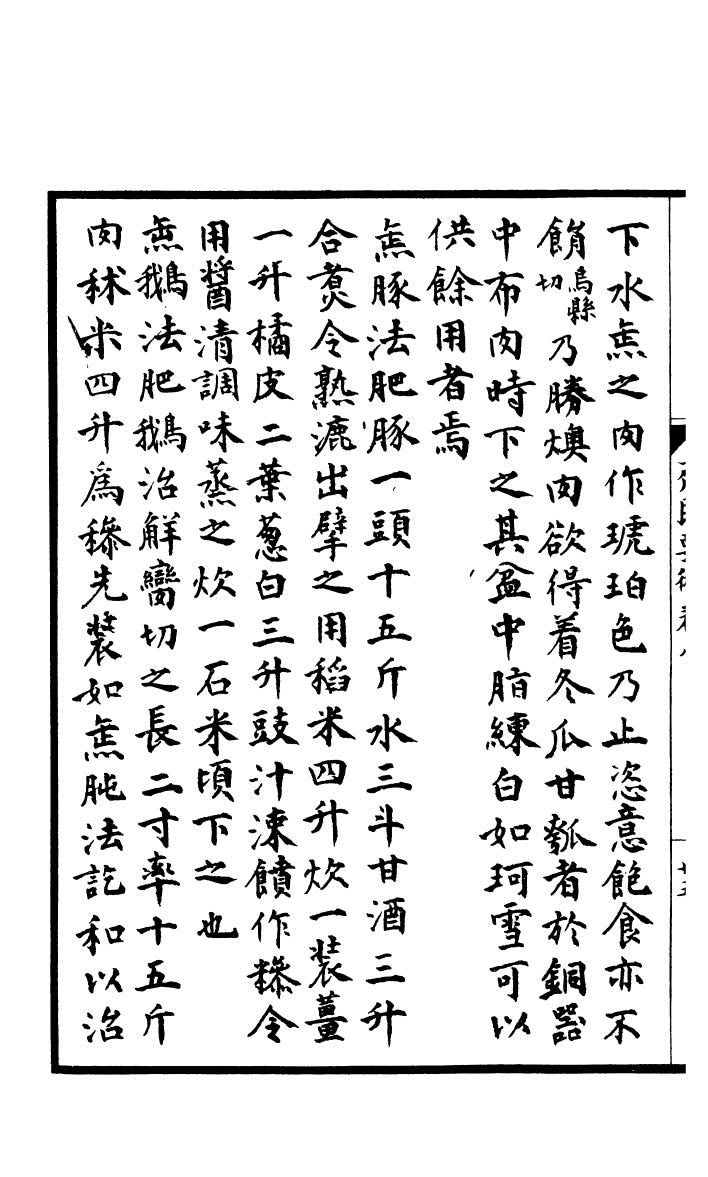 下水缹之肉作琥珀色乃止恣意飽食亦不
䬼烏縣切乃勝燠肉欲得着冬瓜甘瓠者於銅器
中布肉時下之其盆中脂練白如珂雪可以
供餘用者焉
缹豚法肥豚一頭十五斤水三斗甘酒三升
合煑令熟漉出擘之用稻米四升炊一裝薑
一升橘皮二葉葱白三升豉汁涑饙作糝令
用醬清調味蒸之炊一石米頃下之也
缹鵝法肥鵝治解臠切之長二寸率十五斤
肉秫米四升爲糝先裝如缹肫法訖和以治